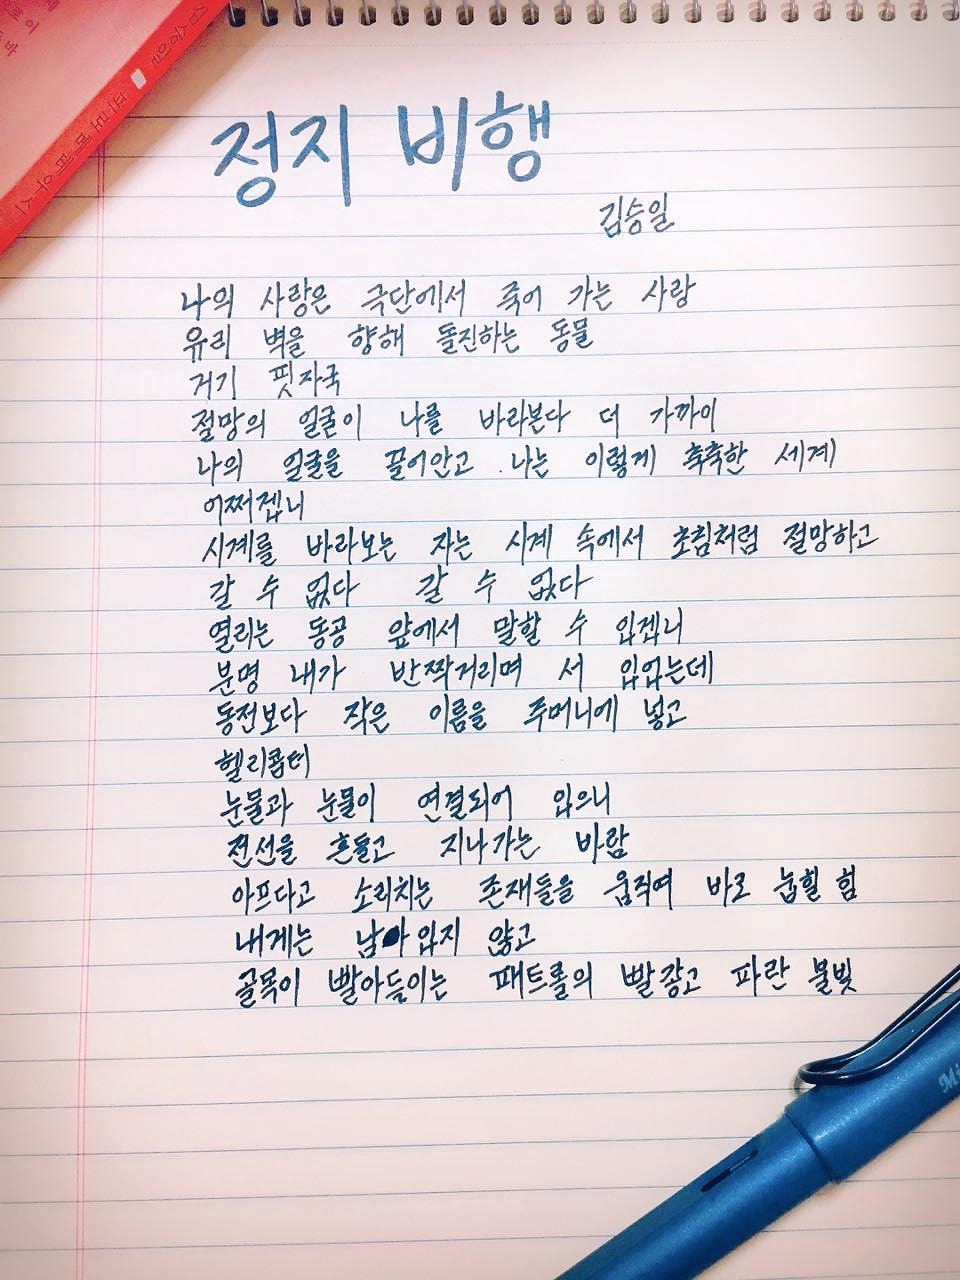 김승일
프로메테우스
정지 비행
김승일
나의 사랑은 극단에서 죽어 가는 사랑
유리 벽을 향해 돌진하는 동물
거기 핏자국
절망의 얼굴이 나를 바라본다 더 가까이
나의 얼굴을 끌어안고 나는 이렇게 축축한 세계
어쩌겠니
시계를 바라보는 자는 시계 속에서 초침처럼 절망하고
갈 수 없다 갈 수 없다
열리는 동공 앞에서 말할 수 있겠니
분명 내가 반짝거리며 서 있었는데
동전보다 작은 이름을 주머니에 넣고
헬리콥터
눈물과 눈물이 연결되어 있으니
전선을 흔들고 지나가는 바람
아프다고 소리치는 존재들을 움직여 바로 눕힐 힘
내게는 남아 있지 않고
골목이 빨아들이는 패트롤의 빨갛고 파란 불빛